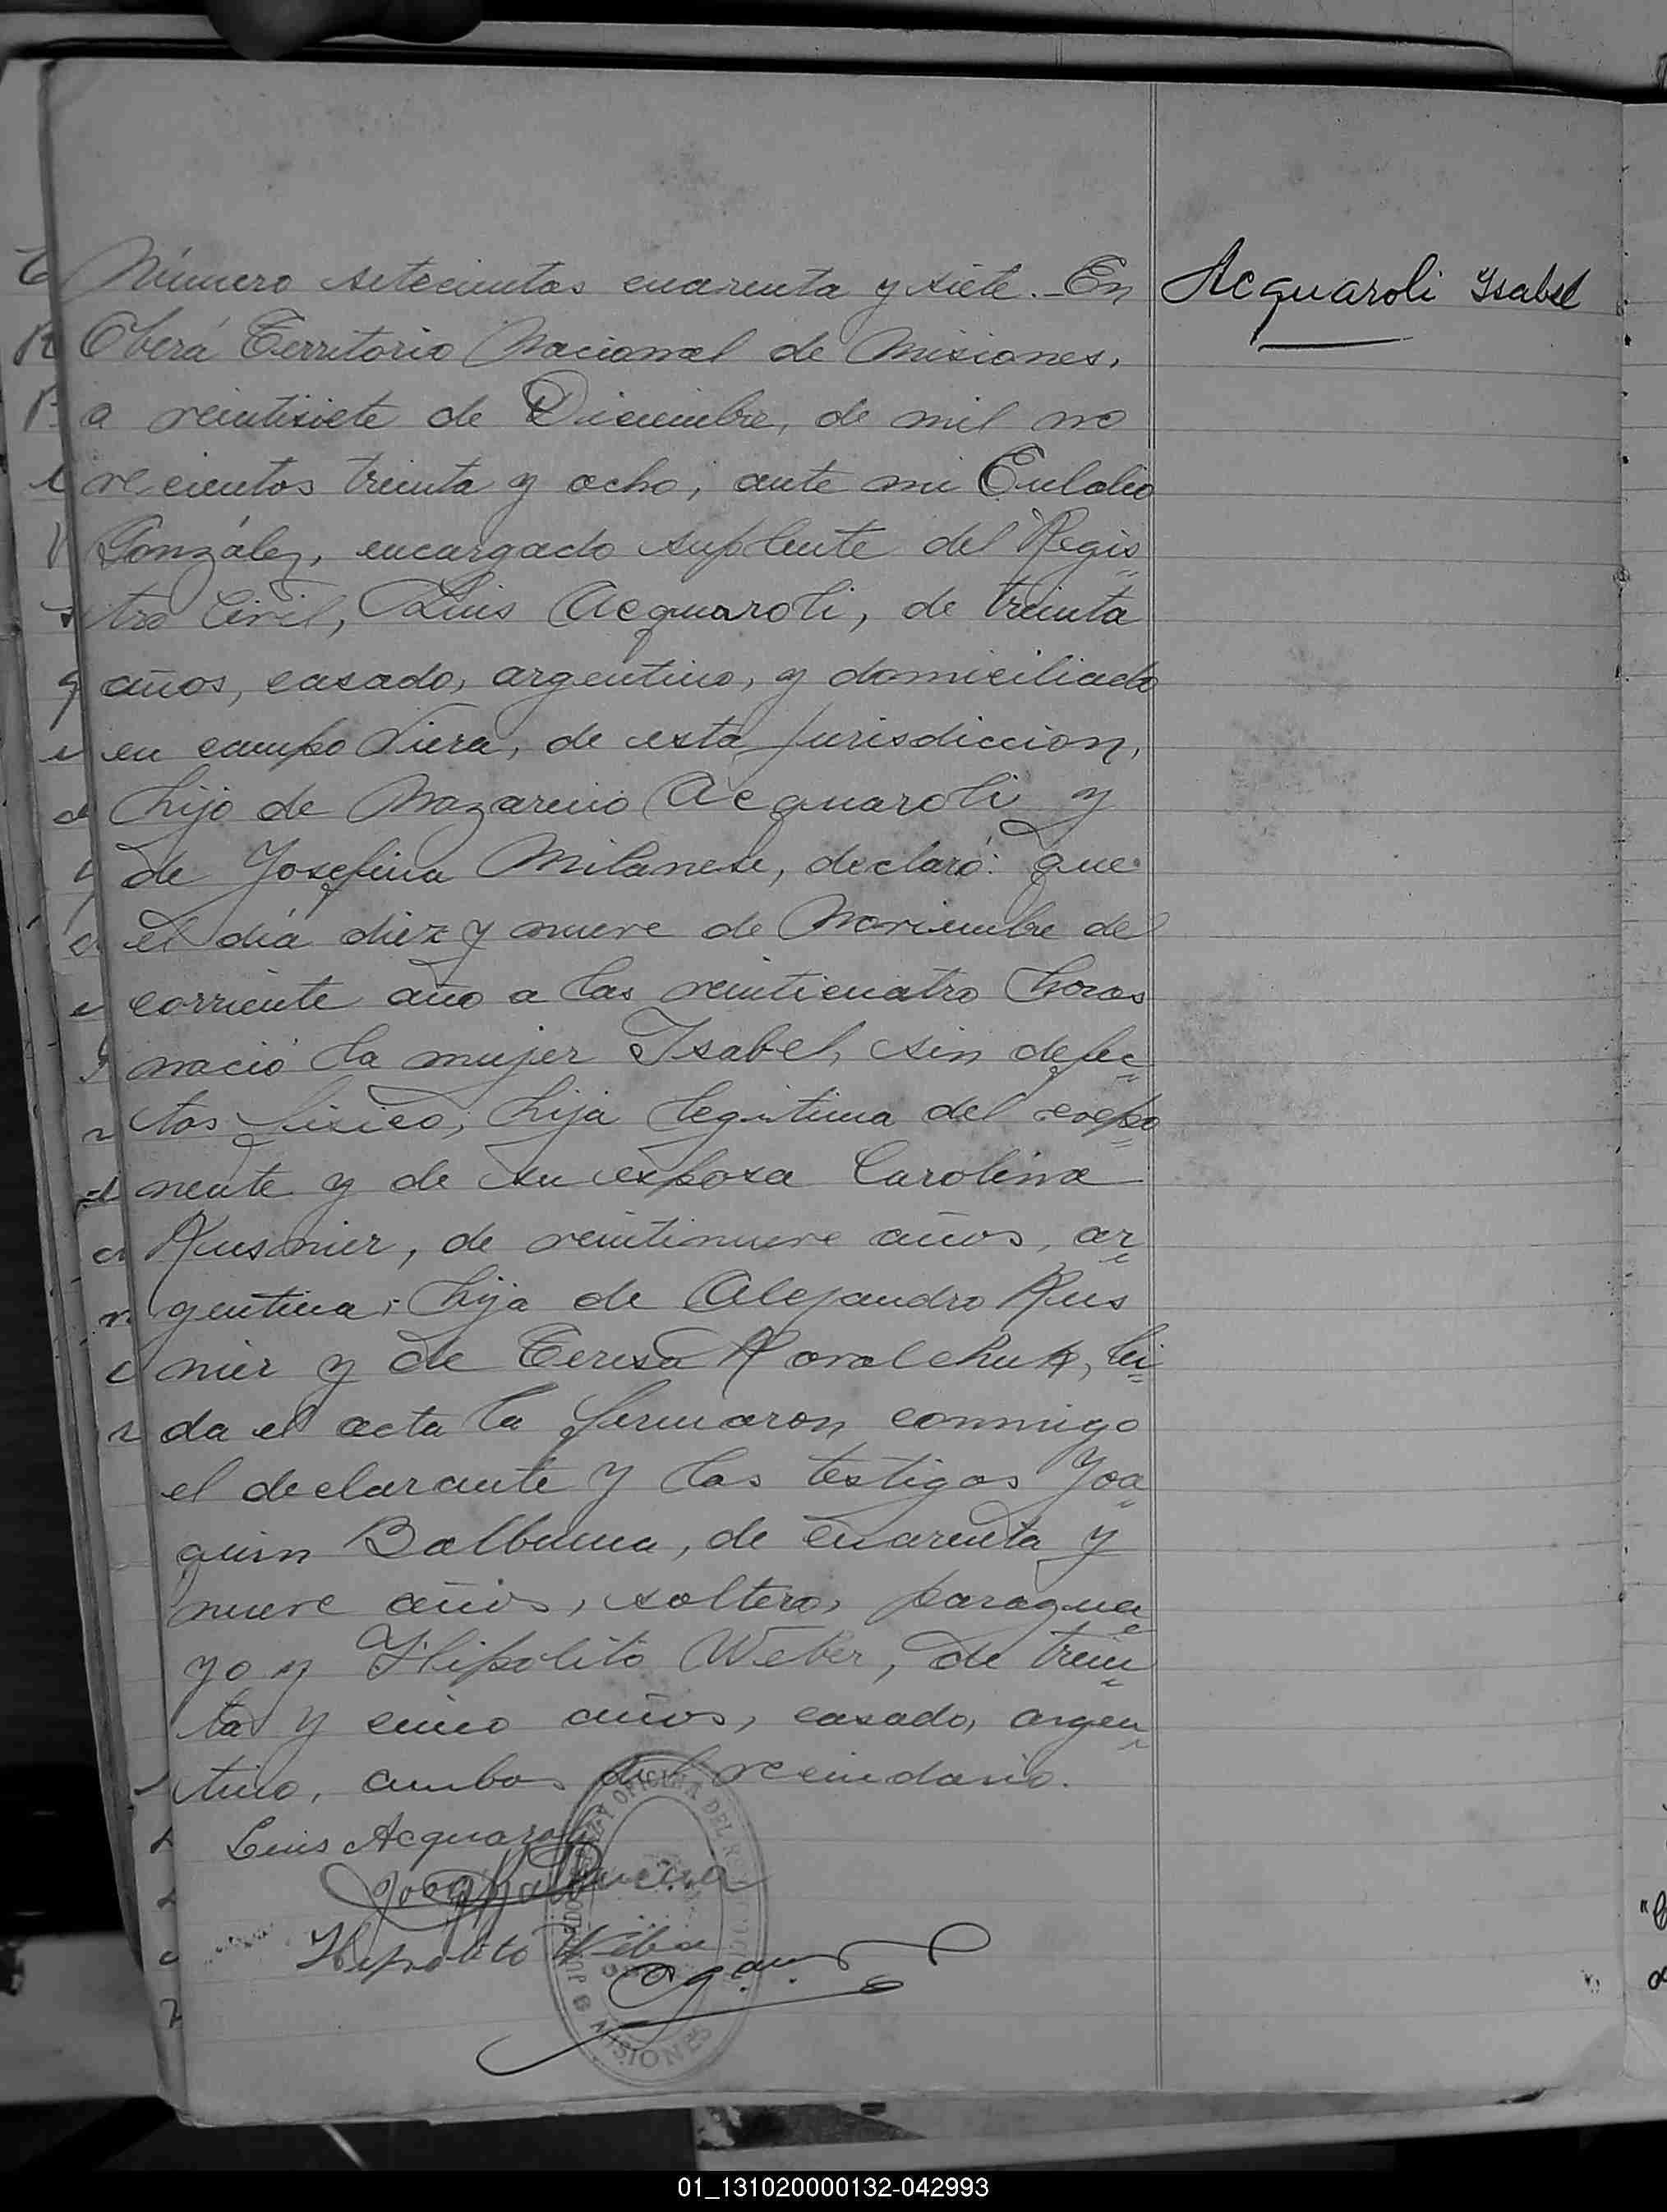 Número setecientos cuarenta y siete.- En
Oberá Territorio Nacional de Misiones,
a veintisiete de Diciembre, de mil no
vecientos treinta y ocho, ante mi Eulalio
González, encargado suplente del Regis
tro Civil, Luis Acquaroli, de treinta
años, casado, argentino, y domiciliado
en campo Viera, de esta jurisdiccion,
hijo de Nazareno Acquaroli y
de Josefina Milanese, declaró: que
el día diez y nueve de Noviembre del
corriente año a las veinticuatro horas
nació la mujer Isabel, sin defec
tos fisico, hija legitima del expo
nente y de su esposa Carolina
Kusnier, de veintinueve años, ar
gentina, hija de Alejandro Kus
nier y de Teresa Kovalchuk, lei
da el acta la firmaron conmigo
el declarante y los testigos Joa
quin Balbuena, de cuarenta y
nueve años, soltero, paragua
yo y Hipolito Weber, de trein
ta y cinco años, casado, argen
tino, ambos del vecindario.
Luis Acquaroli
Hipolito Weber
Acquaroli Isabel
OFICINA DEL
MISIONES
01_131020000132-042993